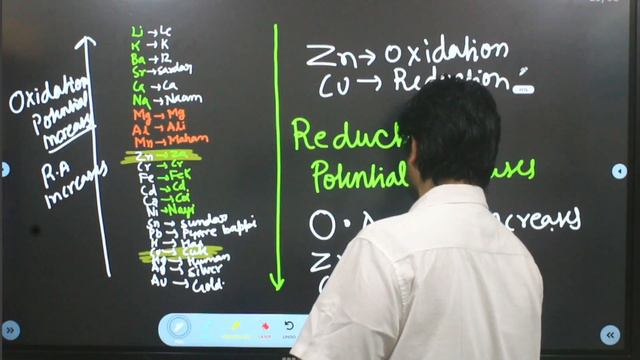 Oxidation
Potential
Increases
R.A
increases
Li → Le
K → K
Ba →
Sr → Sardar
Ca → Ca
Na → Naam
Mg → Mg
Al → Ali
Mn → Maham
Zn → Zn
Cr → Cr
Fe → Fek
Cd → Cd
Co → Co
Ni → Nayi
Sn → Sundar
Pb → Pyare bappi
H → Hai
Cu → Cute
Hg → Human
Ag → Silver
Au → Gold.
Zn → Oxidation
Cu → Reduction
Reduc
Potential ses
O. increases
Z
LASER
UNDO